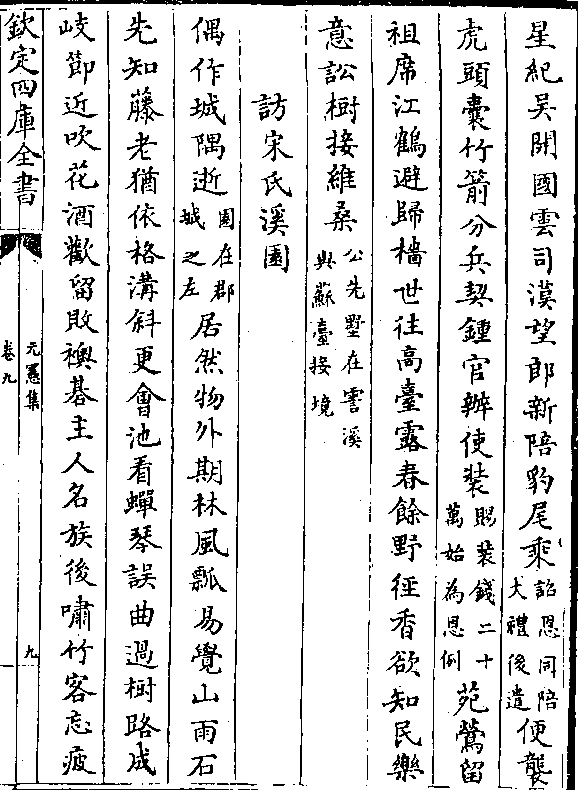 星紀吳開國雲司漢望郎新陪豹尾乘詔恩同陪大禮後遣便襲
虎頭囊竹箭分兵契鍾官辦使裝賜裝錢二十萬始為恩例苑鶯留
祖席江鶴避歸檣世往高臺露春餘野徑香欲知民樂
意訟樹接維桑公先墅在霅溪與蘇臺接境
訪宋氏溪園
偶作城隅逝園在郡城之左居然物外期林風瓢易覺山雨石
先知藤老猶依格溝斜更會池看蟬琴誤曲過樹路成
岐節近吹花酒歡留敗襖棊主人名族後嘯竹客忘疲
欽定四庫全書
元憲集
卷九
九